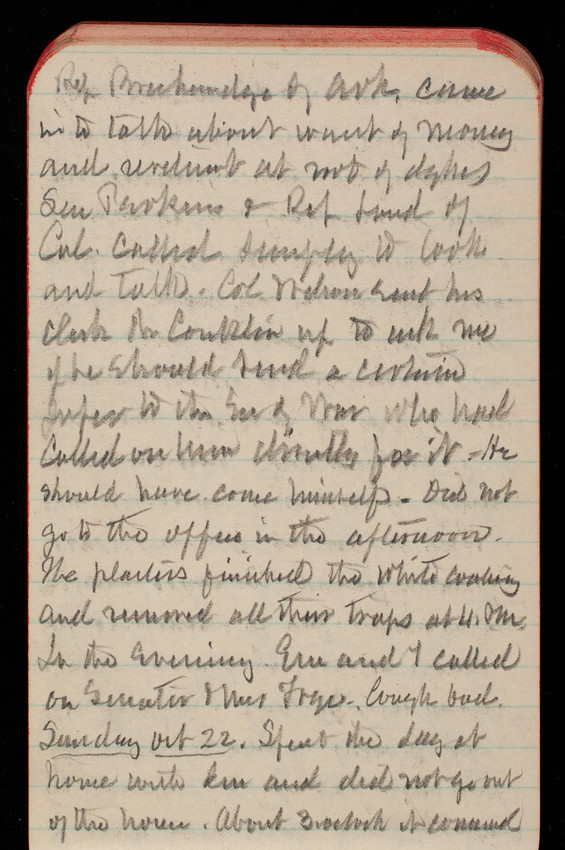 Rep Breckenridge of Ark. came
in to talk about want of money
and revetment at not of dykes
Sen Perkins & Rep. of
Cal. called simply to look
and talk. Col Wilson sent his
clerk Mr Conklin up to ask me
if he should send a certain
paper to the Sec of War who had
called on him directly for it - He
should have come himself - Did not
go to the office in the afternoon.
The plasters finished the white coating
and removed all their traps at 4. PM.
In the evening Em and I called
on Senator & Mrs Frye. Cough bad.
Sunday Oct 22. Spent the day at
home with Em and did not go out
of the house. About 3 oclock it